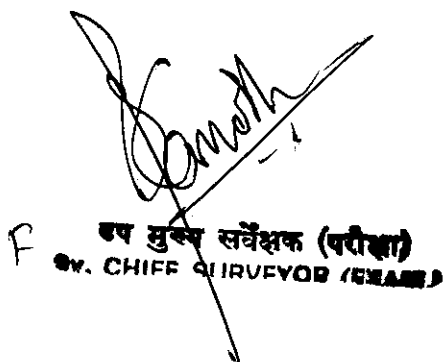 F
उप मुख्य सर्वेक्षक (परीक्षा)
Dy. CHIEF SURVEYOR (EXAM.)